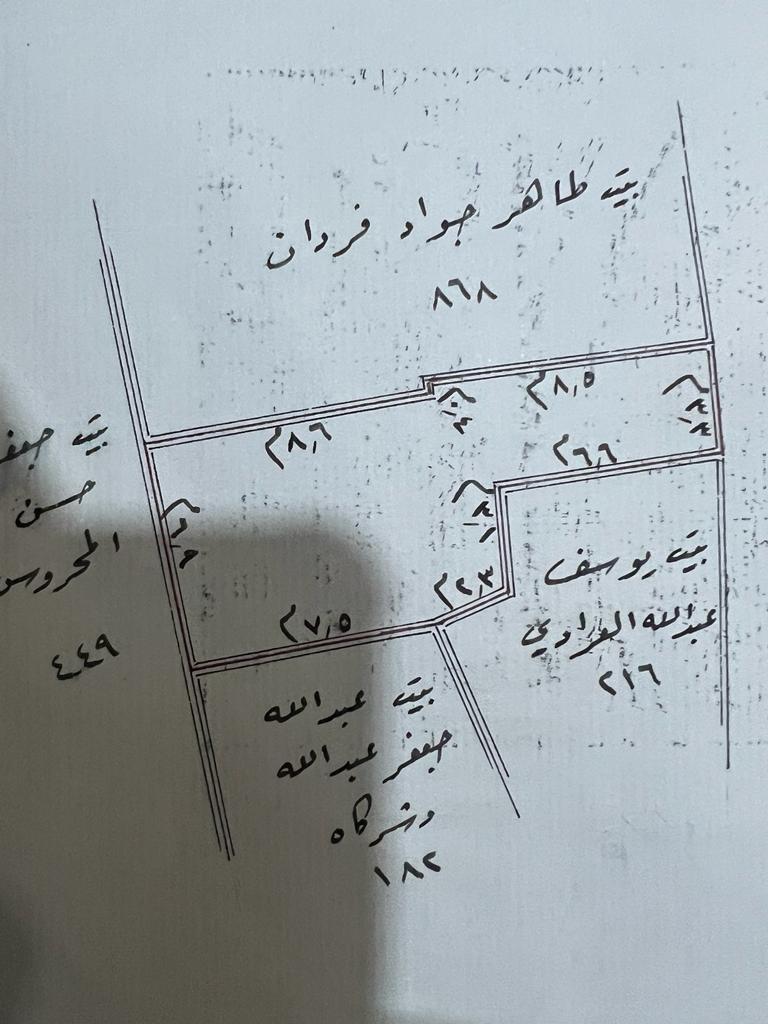 بيت طاهر جواد فردان
٨٦٨
٨,٥م
٨,٦م
٦,٦م
٢,٣م
٧,٥م
بيت
حسن
٤٤٩
بيت يوسف
عبدالله العرادي
٢١٦
بيت عبدالله
جعفر عبدالله
وشركاه
١٨٢